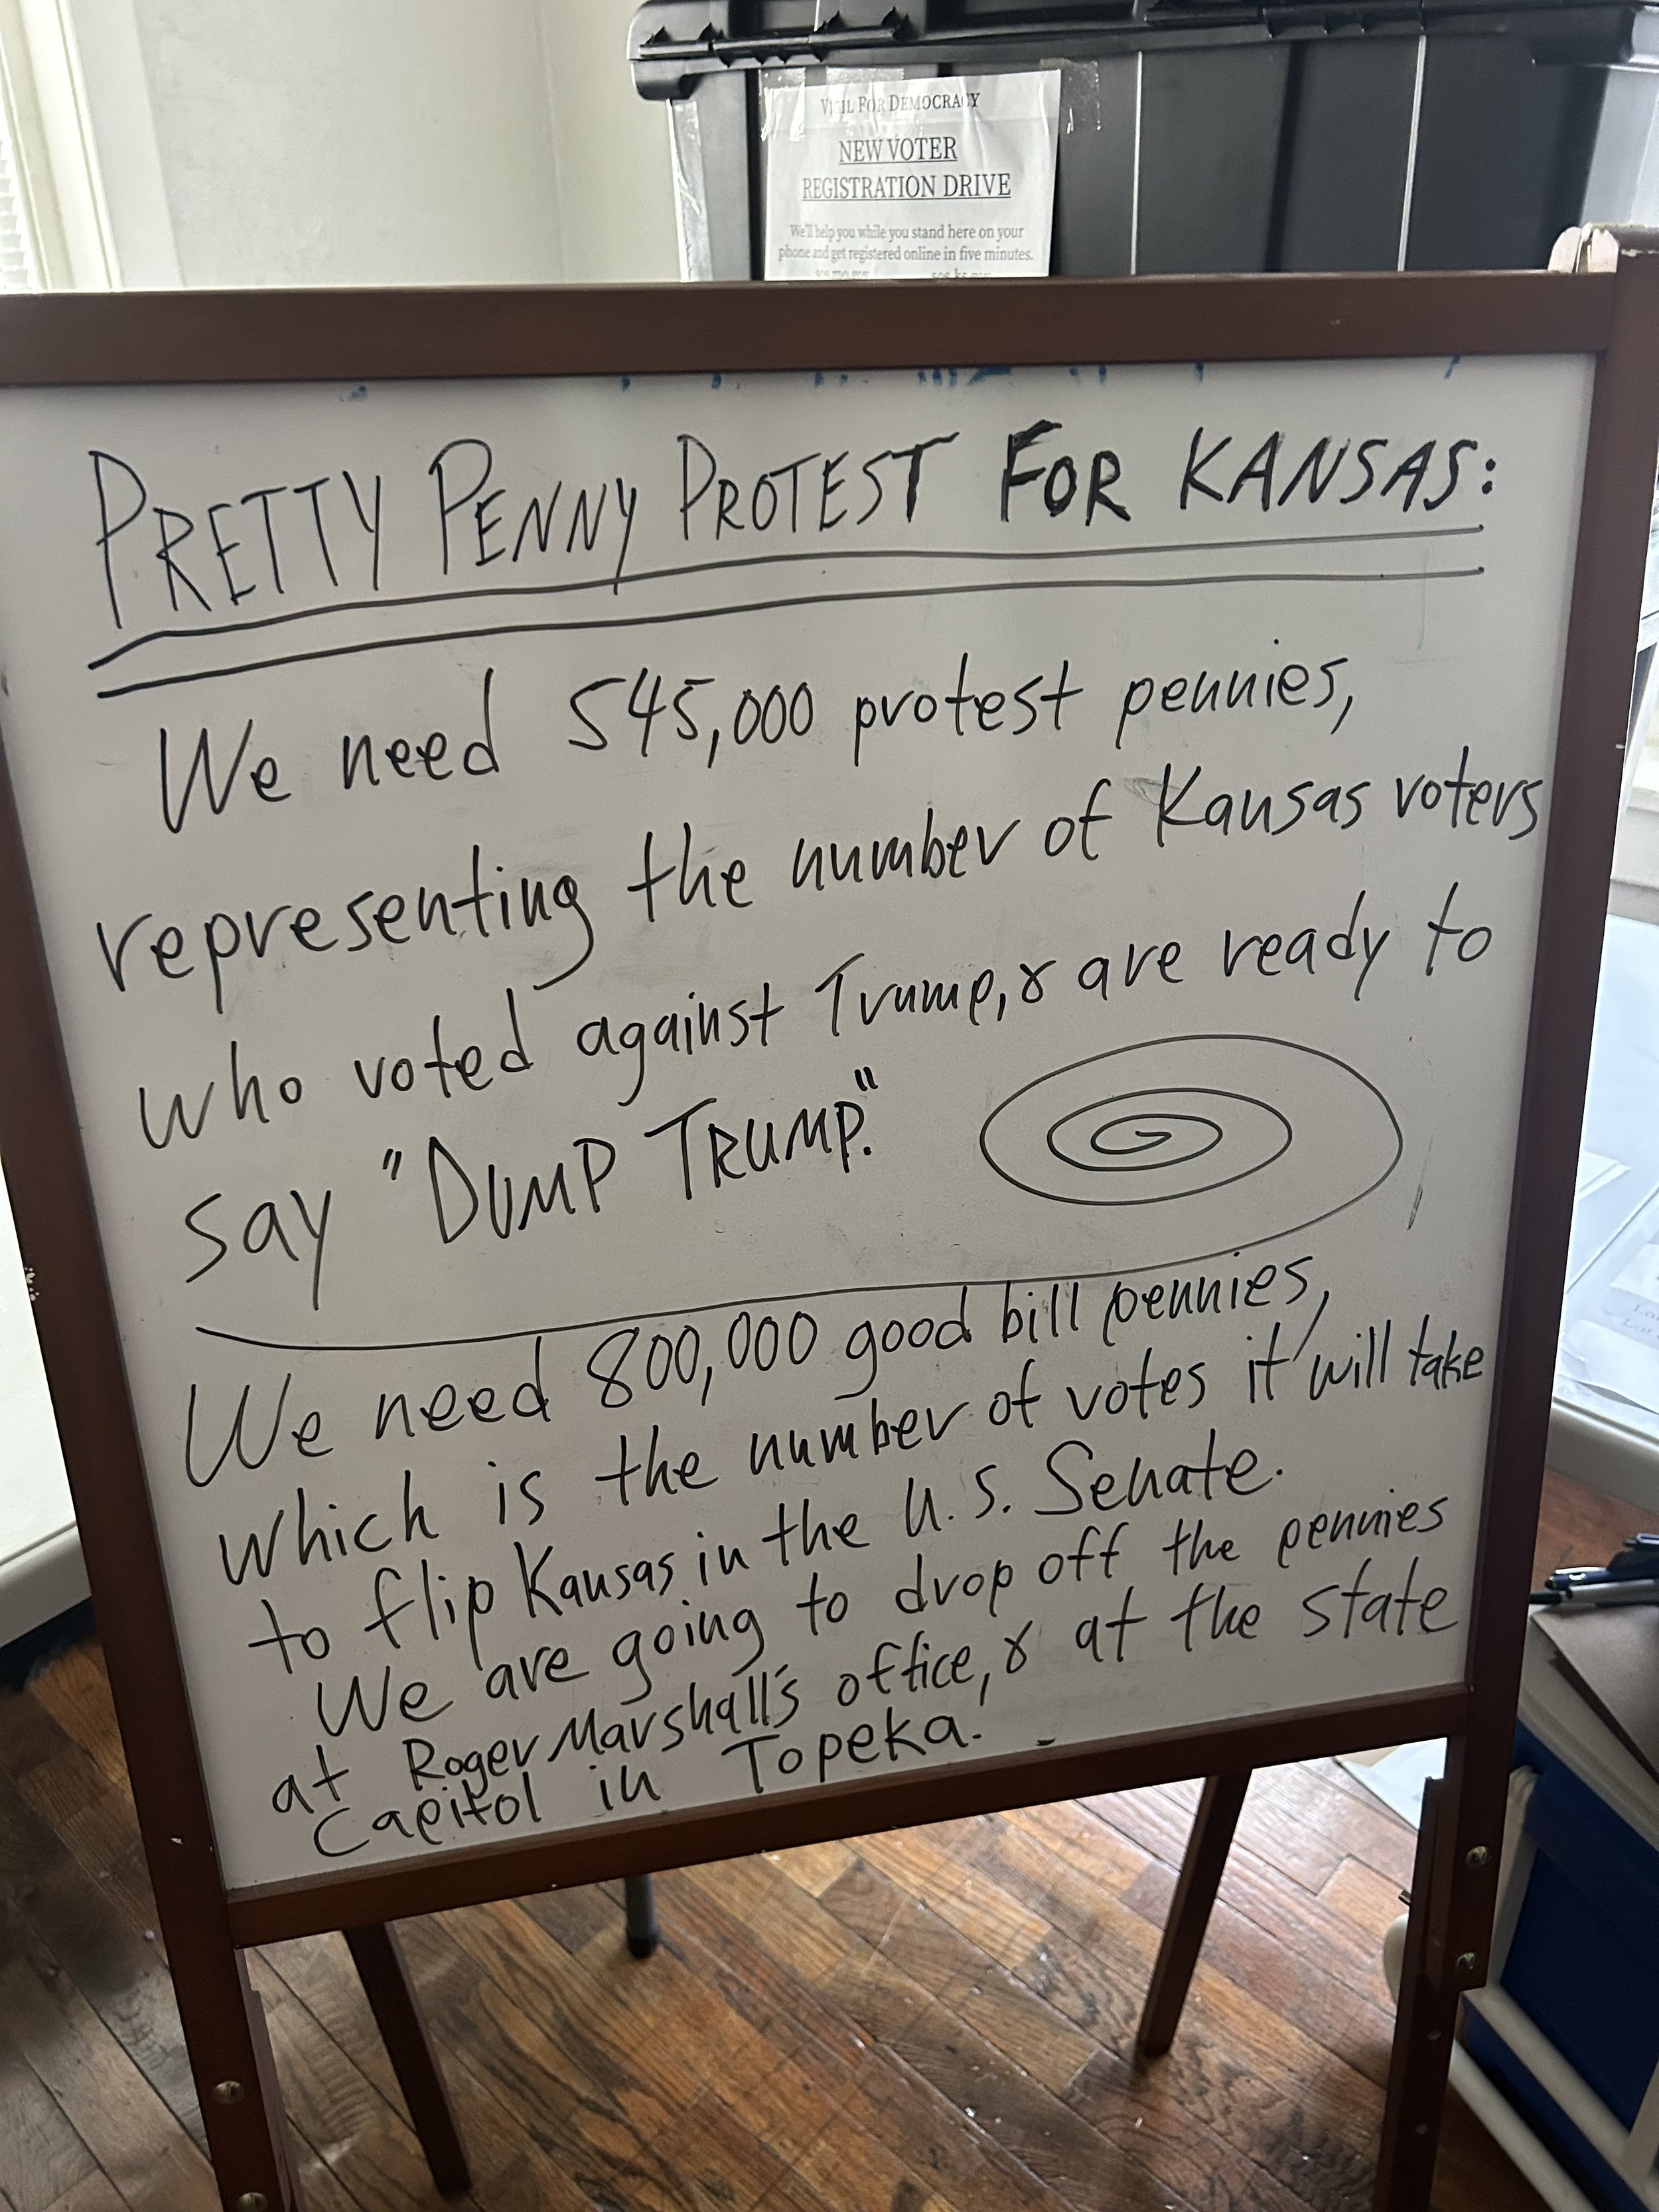 VIGIL FOR DEMOCRACY
NEW VOTER
REGISTRATION DRIVE
We'll help you while you stand here on your
phone and get registered online in five minutes.
PRETTY PENNY PROTEST FOR KANSAS:
We need 545,000 protest pennies,
representing the number of Kansas voters
who voted against Trump, & are ready to
say "DUMP TRUMP."
We need 800,000 good bill pennies,
which is the number of votes it will take
to flip Kansas in the U.S. Senate.
We are going to drop off the pennies
at Roger Marshall's office, & at the state
Capitol in Topeka.